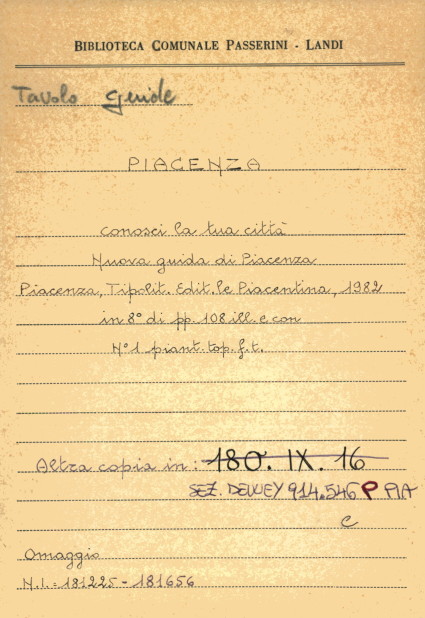 BIBLIOTECA COMUNALE PASSERINI - LANDI
Tavolo guide
PIACENZA
conosci la tua città
Nuova guida di Piacenza
Piacenza, Tipolit. Edit.le Piacentina, 1982
in 8° di pp. 108 ill. e con
N° 1 piant. top. f. t.
Altra copia in: 180. IX. 16
SEZ. DEWEY 914.546 P PIA
C
Omaggio
N.I.= 181225 - 181656